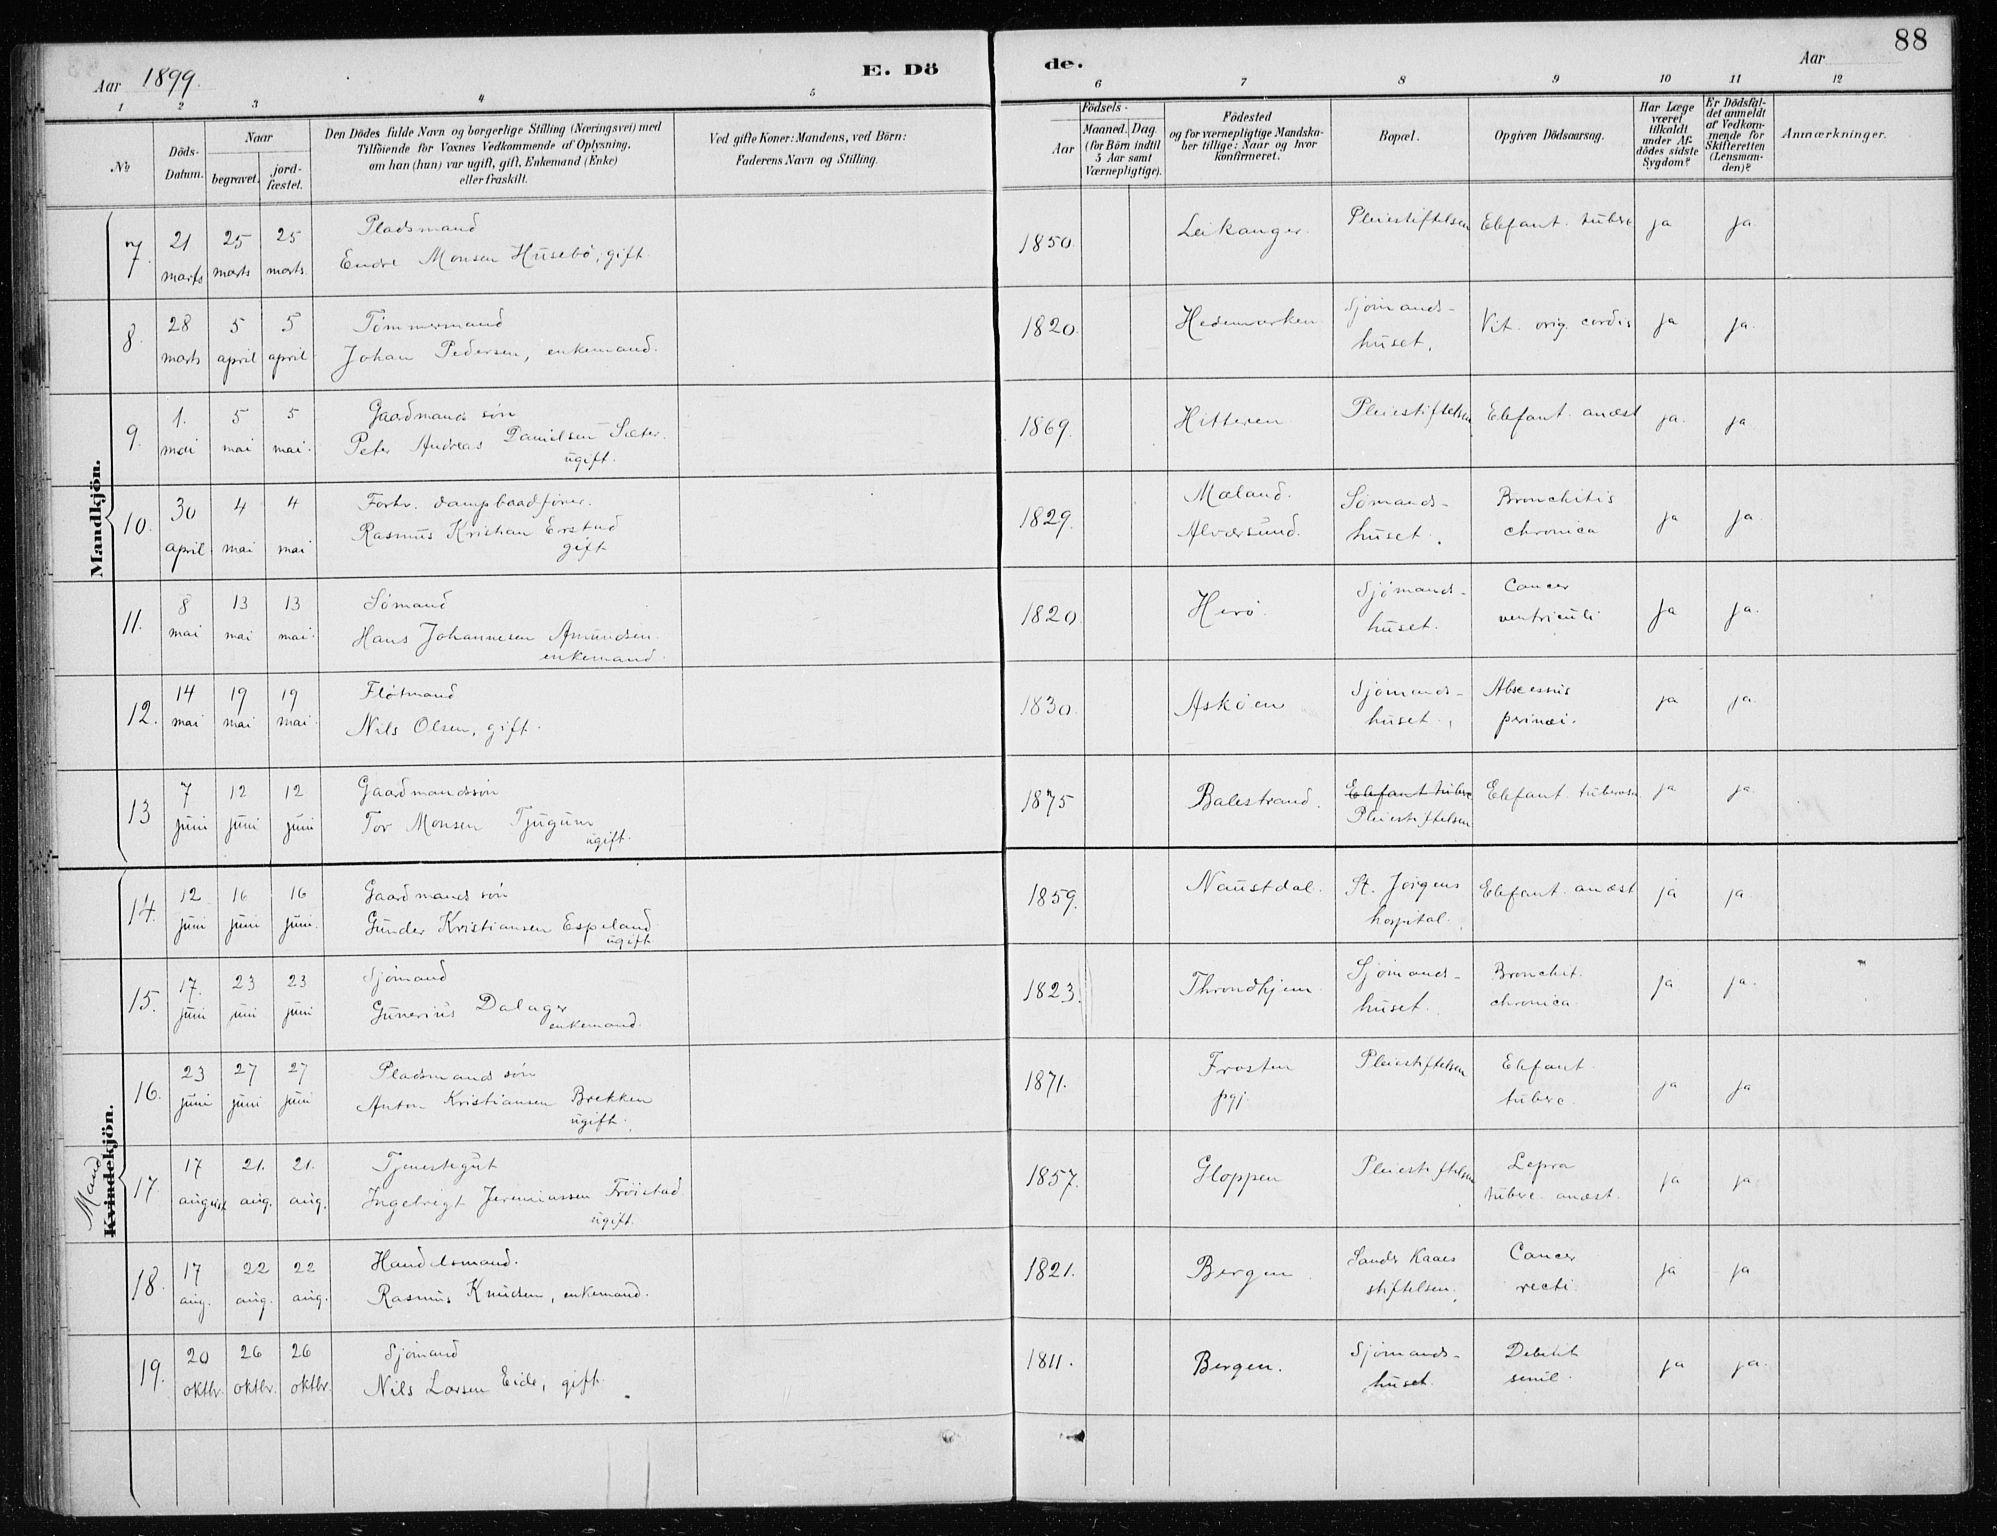 88
Aar 1899. E. Dö de. Aar
1 2 3 4 5 6 7 8 9 10 11 12
No
Döds-Datum.
Naar
begravet.
jord-fæstet.
Den Dödes fulde Navn og borgerlige Stilling (Næringsvei) med
Tilföiende for Voxnes Vedkommende af Oplysning,
om han (hun) var ugift, gift, Enkemand (Enke)
eller fraskilt.
Ved gifte Koner: Mandens, ved Börn:
Faderens Navn og Stilling.
Födsels-
Aar
Maaned. Dag.
(for Börn indtil
5 Aar samt
Værnepligtige).
Födested
og for værnepligtige Mandska-
ber tillige: Naar og hvor
konfirmeret.
Bopæl.
Opgiven Dödsaarsag.
Har Læge
været
tilkaldt
under Af-
dödes sidste
Sygdom?
Er Dödsfal-
det anmeldt
af Vedkom-
mende for
Skifteretten
(Lensman-
den)?
Anmærkninger.
Mandkjön.
7. 21 marts 25 marts 25 marts. Pladsmand
Endre Monsen Husebö, gift. 1850. Leikanger. Pleiestiftelsen Elefant. tuberc ja ja.
8. 28 marts 5 april 5 april Tömmermand
Johan Pedersen, enkemand. 1820. Hedemarken Sjömands-
huset. Vit. orig. cordis ja ja.
9. 1. mai 5 mai 5 mai. Gaardmands sön
Peter Andreas Danielsen Sæter.
ugift. 1869. Hitteren Pleiestiftelsen Elefant. anæst ja. ja
10. 30 april 4 mai 4 mai Forhv. dampbaadförer.
Rasmus Kristian Erstad
gift 1829. Mæland.
Alversund. Sömands-
huset. Bronchitis
chronica ja ja.
11. 8 mai 13 mai 13 mai. Sömand
Hans Johannesen Amundsen.
enkemand. 1820. Herö. Sjömands-
huset. Cancer
ventriculi ja ja.
12. 14 mai 19 mai 19 mai. Flötmand
Nils Olsen, gift. 1830. Asköen Sjömands-
huset. Abscessus
perinæi. ja ja.
13 7 juni 12 juni 12 juni Gaardmandssön
Tor Monsen Tjugum
ugift. 1875 Balestrand. Elefant tuberc
Pleiestiftelsen Elefant. tuberosa ja ja.
Mand
Kvindekjön.
14. 12. juni 16 juni 16 juni. Gaardmands sön
Gunder Kristiansen Espeland
ugift 1859. Naustdal. St. Jörgens
hospital. Elefant. anæst ja ja.
15. 17. juni 23 juni 23 juni Sjömand
Gunerius Dalager
enkemand. 1823. Throndhjem Sjömands-
huset. Bronchit.
chronica ja ja.
16. 23 juni 27 juni 27 juni Pladsmands sön
Anton Kristiansen Brekken
ugift. 1871. Frosten
pgj. Pleiestiftelsen Elefant.
tuberc. ja ja
17. 17 august 21. aug. 21. aug. Tjenestegut
Ingebrigt Jeremiassen Fröistad
ugift. 1857. Gloppen Pleiestiftelsen Lepra
tuberc. anæst. ja ja
18. 17 aug. 22 aug. 22 aug. Handelsmand.
Rasmus Knudsen, enkemand. 1821. Bergen Sander Kaaes
stiftelsen. Cancer
recti. ja ja
19. 20 oktbr. 26 oktbr. 26 oktbr. Sjömand
Nils Larsen Eide, gift. 1811. Bergen. Sjömands-
huset. Debilit
senil. ja ja.